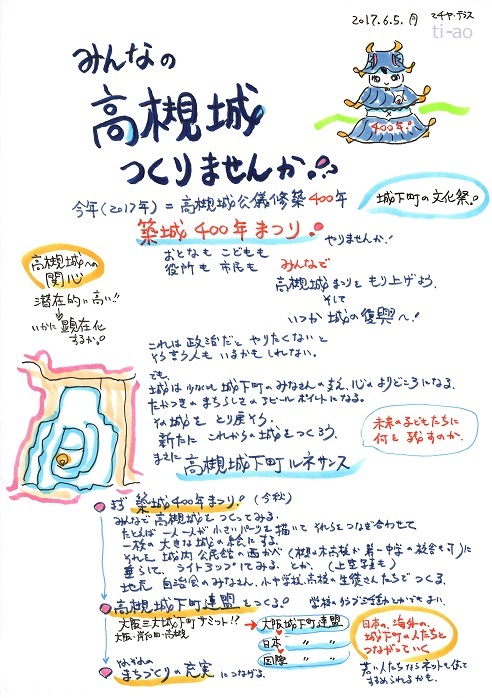 2017.6.5.月 マチヤ・テラス
ti-ao
みんなの
高槻城
つくりませんか!!
400年!
今年(2017年)=高槻城公儀修築400年
城下町の文化祭。
築城400年まつり!
やりませんか!
おとなも こどもも
役所も 市民も
みんなで
高槻城まつりを もり上げよう。
そして
いつか 城の復興へ!
高槻城への
関心
潜在的に高い!!
いかに 顕在化
するか。
これは 政治だと やりたくないと
そう言う人も いるかもしれない。
でも、
城は 少なくとも 城下町のみなさんの支え、心のよりどころになる。
たかつきの まちらしさの アピールポイントになる。
その城を とり戻そう。
新たに これからの城をつくろう。
まさに 高槻城下町ルネサンス
未来の子どもたちに
何を残すのか。
まず 築城400年まつり!(今秋)
みんなで 高槻城を つくってみる。
たとえば 一人一人が 小さいパーツを 描いて それらをつなぎ合わせて
一枚の 大きな城の絵にする。
それを 城内公民館の西かべ(商工会議所か 第一中学の校舎も可)に
垂らして、ライトアップしてみる。とか。(上空写真も)
地元 自治会のみなさん、小中学校、高校の生徒さんたちでつくる。
高槻城下町連盟をつくる。 学校のクラブ活動とかでもよい。
大阪三大城下町サミット!?
大阪・岸和田・高槻
大阪城下町連盟
日本 〃 〃
国際 〃 〃
日本の、海外の、
城下町の人たちと
つながっていく
若い人たちならネットも使って
すすめられるかも。
まちづくりの充実 につなげる。